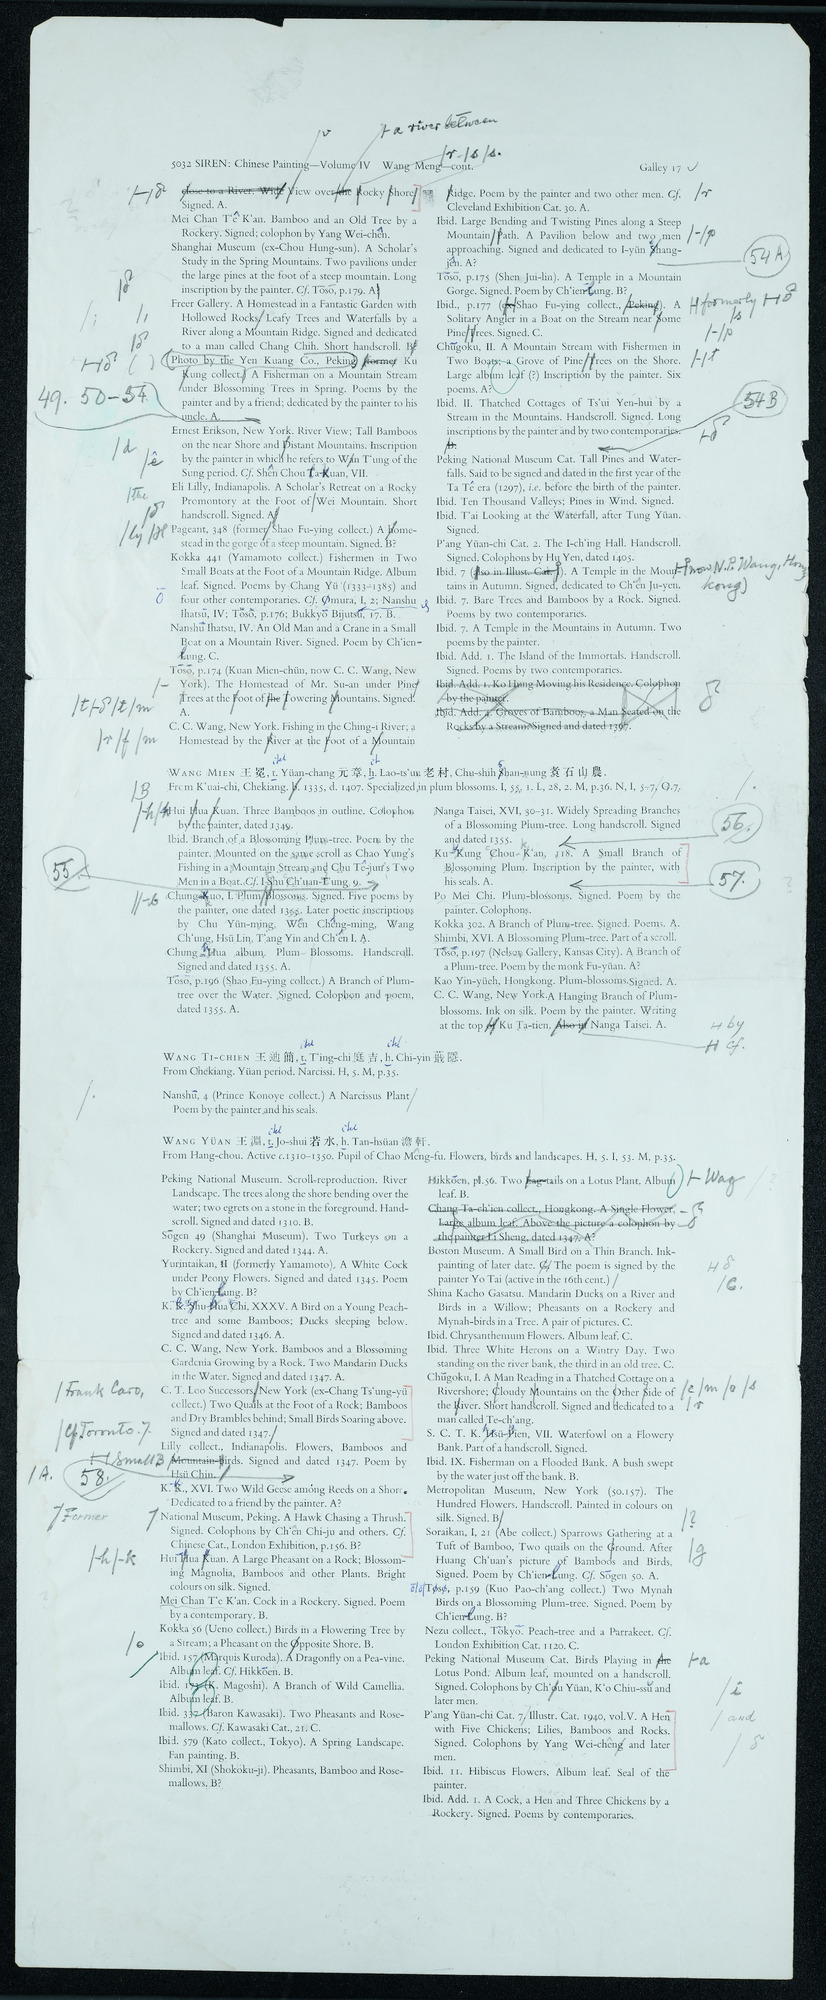 v
a river between
r-/s/s.
5032 SIREN: Chinese Painting—Volume IV Wang Meng—cont. Galley 17
close to a River. Wide View over the Rocky Shore
Signed. A.
Mei Chan T'ê K'an. Bamboo and an Old Tree by a
Rockery. Signed; colophon by Yang Wei-chên.
Shanghai Museum (ex-Chou Hung-sun). A Scholar's
Study in the Spring Mountains. Two pavilions under
the large pines at the foot of a steep mountain. Long
inscription by the painter. Cf. Tōsō, p.179. A
Freer Gallery. A Homestead in a Fantastic Garden with
Hollowed Rocks/ Leafy Trees and Waterfalls by a
River along a Mountain Ridge. Signed and dedicated
to a man called Chang Chih. Short handscroll. B
Photo by the Yen Kuang Co., Peking (former Ku
Kung collect.) A Fisherman on a Mountain Stream
under Blossoming Trees in Spring. Poems by the
painter and by a friend; dedicated by the painter to his
uncle. A.
49. 50-54
Ernest Erikson, New York. River View; Tall Bamboos
on the near Shore and Distant Mountains. Inscription
by the painter in which he refers to Wan T'ung of the
Sung period. Cf. Shên Chou Ta-kuan, VII.
Eli Lilly, Indianapolis. A Scholar's Retreat on a Rocky
Promontory at the Foot of Wei Mountain. Short
handscroll. Signed. A
the
Pageant, 348 (former Shao Fu-ying collect.) A Home-
stead in the gorge of a steep mountain. Signed. B?
Kokka 441 (Yamamoto collect.) Fishermen in Two
Small Boats at the Foot of a Mountain Ridge. Album
leaf. Signed. Poems by Chang Yü (1333–1385) and
four other contemporaries. Cf. Omura, I, 2; Nanshu
Ihatsu, IV; Tōsō, p.176; Bukkyō Bijutsu, 17. B.
Nanshū Ihatsu, IV. An Old Man and a Crane in a Small
Boat on a Mountain River. Signed. Poem by Ch'ien-
lung. C.
Tōsō, p.174 (Kuan Mien-chün, now C. C. Wang, New
York). The Homestead of Mr. Su-an under Pine
Trees at the Foot of the Towering Mountains. Signed.
A.
C. C. Wang, New York. Fishing in the Ching-i River; a
Homestead by the River at the Foot of a Mountain
Ridge. Poem by the painter and two other men. Cf.
Cleveland Exhibition Cat. 30. A.
Ibid. Large Bending and Twisting Pines along a Steep
Mountain Path. A Pavilion below and two men
approaching. Signed and dedicated to I-yün Shang-
jên. A?
54A
Tōsō, p.175 (Shen Jui-lin). A Temple in a Mountain
Gorge. Signed. Poem by Ch'ien-lung. B?
Ibid., p.177 (Shao Fu-ying collect., Peking). A
Solitary Angler in a Boat on the Stream near Some
Pine Trees. Signed. C.
formerly
Chūgoku, II. A Mountain Stream with Fishermen in
Two Boats; a Grove of Pine Trees on the Shore.
Large album leaf (?) Inscription by the painter. Six
poems. A?
Ibid. II. Thatched Cottages of Ts'ui Yen-hui by a
Stream in the Mountains. Handscroll. Signed. Long
inscriptions by the painter and by two contemporaries.
54B
Peking National Museum Cat. Tall Pines and Water-
falls. Said to be signed and dated in the first year of the
Ta Tê era (1297), i.e. before the birth of the painter.
Ibid. Ten Thousand Valleys; Pines in Wind. Signed.
Ibid. T'ai Looking at the Waterfall, after Tung Yüan.
Signed.
P'ang Yüan-chi Cat. 2. The I-ch'ing Hall. Handscroll.
Signed. Colophons by Hu Yen, dated 1405.
Ibid. 7 (also in Illust. Cat.). A Temple in the Moun-
tains in Autumn. Signed, dedicated to Ch'ên Ju-yen.
now N.P. Wang, Hong
kong)
Ibid. 7. Bare Trees and Bamboos by a Rock. Signed.
Poems by two contemporaries.
Ibid. 7. A Temple in the Mountains in Autumn. Two
poems by the painter.
Ibid. Add. 1. The Island of the Immortals. Handscroll.
Signed. Poems by two contemporaries.
Ibid. Add. 1. Ko Hung Moving his Residence. Colophon
by the painter.
Ibid. Add. 4. Groves of Bamboos, a Man Seated on the
Rocks by a Stream. Signed and dated 1367.
WANG MIEN 王冕, t. Yüan-chang 元章, h. Lao-ts'un 老村, Chu-shih Shan-nung 煑石山農.
From K'uai-chi, Chekiang. b. 1335, d. 1407. Specialized in plum blossoms. I, 55, 1. L, 28, 2. M, p.36. N, I, 5–7, O.7.
Hui Hua Kuan. Three Bamboos in outline. Colophon
by the painter, dated 1349.
Ibid. Branch of a Blossoming Plum-tree. Poem by the
painter. Mounted on the same scroll as Chao Yung's
Fishing in a Mountain Stream and Chu Tê-jun's Two
Men in a Boat. Cf. I Shu Ch'uan-T'ung, 9.
55
Chung-kuo, I. Plum Blossoms. Signed. Five poems by
the painter, one dated 1355. Later poetic inscriptions
by Chu Yün-ming, Wên Chêng-ming, Wang
Ch'ung, Hsü Lin, T'ang Yin and Ch'ên I. A.
Chung Hua album. Plum Blossoms. Handscroll.
Signed and dated 1355. A.
Tōsō, p.196 (Shao Fu-ying collect.) A Branch of Plum-
tree over the Water. Signed. Colophon and poem,
dated 1355. A.
Nanga Taisei, XVI, 30–31. Widely Spreading Branches
of a Blossoming Plum-tree. Long handscroll. Signed
and dated 1355.
56.
Ku-Kung Chou-K'an, 118. A Small Branch of
Blossoming Plum. Inscription by the painter, with
his seals. A.
57.
Po Mei Chi. Plum-blossoms. Signed. Poem by the
painter. Colophons.
Kokka 302. A Branch of Plum-tree. Signed. Poems. A.
Shimbi, XVI. A Blossoming Plum-tree. Part of a scroll.
Tōsō, p.197 (Nelson Gallery, Kansas City). A Branch of
a Plum-tree. Poem by the monk Fu-yüan. A?
Kao Yin-yüeh, Hongkong. Plum-blossoms. Signed. A.
C. C. Wang, New York. A Hanging Branch of Plum-
blossoms. Ink on silk. Poem by the painter. Writing
at the top of Ku Ta-tien. Also in Nanga Taisei. A.
by
cf.
WANG TI-CHIEN 王迪簡, t. T'ing-chi 庭吉, h. Chi-yin 蕺隱.
From Chekiang. Yüan period. Narcissi. H, 5. M, p.35.
Nanshū, 4 (Prince Konoye collect.) A Narcissus Plant
Poem by the painter and his seals.
WANG YÜAN 王淵, t. Jo-shui 若水, h. Tan-hsüan 澹軒.
From Hang-chou. Active c.1310–1350. Pupil of Chao Mêng-fu. Flowers, birds and landscapes. H, 5. I, 53. M, p.35.
Peking National Museum. Scroll-reproduction. River
Landscape. The trees along the shore bending over the
water; two egrets on a stone in the foreground. Hand-
scroll. Signed and dated 1310. B.
Sōgen 49 (Shanghai Museum). Two Turkeys on a
Rockery. Signed and dated 1344. A.
Yurintaikan, II (formerly Yamamoto), A White Cock
under Peony Flowers. Signed and dated 1345. Poem
by Ch'ien-lung. B?
K. K. Shu-hua Chi, XXXV. A Bird on a Young Peach-
tree and some Bamboos; Ducks sleeping below.
Signed and dated 1346. A.
C. C. Wang, New York. Bamboos and a Blossoming
Gardenia Growing by a Rock. Two Mandarin Ducks
in the Water. Signed and dated 1347. A.
C. T. Loo Successors, New York (ex-Chang Ts'ung-yü
collect.) Two Quails at the Foot of a Rock; Bamboos
and Dry Brambles behind; Small Birds Soaring above.
Signed and dated 1347.
Frank Caro,
Cf Toronto. 7.
Lilly collect., Indianapolis. Flowers, Bamboos and
Mountain-Birds. Signed and dated 1347. Poem by
Hsü Chin.
Small B
A. 58.
K. K., XVI. Two Wild Geese among Reeds on a Shore.
Dedicated to a friend by the painter. A?
Former
National Museum, Peking. A Hawk Chasing a Thrush.
Signed. Colophons by Ch'ên Chi-ju and others. Cf.
Chinese Cat., London Exhibition, p.156. B?
Hui Hua Kuan. A Large Pheasant on a Rock; Blossom-
ing Magnolia, Bamboos and other Plants. Bright
colours on silk. Signed.
Mei Chan T'e K'an. Cock in a Rockery. Signed. Poem
by a contemporary. B.
Kokka 56 (Ueno collect.) Birds in a Flowering Tree by
a Stream; a Pheasant on the Opposite Shore. B.
Ibid. 157 (Marquis Kuroda). A Dragonfly on a Pea-vine.
Album leaf. Cf. Hikkōen. B.
Ibid. (K. Magoshi). A Branch of Wild Camellia.
Album leaf. B.
Ibid. 337 (Baron Kawasaki). Two Pheasants and Rose-
mallows. Cf. Kawasaki Cat., 21. C.
Ibid. 579 (Kato collect., Tokyo). A Spring Landscape.
Fan painting. B.
Shimbi, XI (Shokoku-ji). Pheasants, Bamboo and Rose-
mallows. B?
Hikkōen, pl.56. Two tails on a Lotus Plant, Album
leaf. B.
Wag
Chang Ta-ch'ien collect., Hongkong. A Single Flower.
Large album leaf. Above the picture a colophon by
the painter Li Sheng, dated 1347. A?
Boston Museum. A Small Bird on a Thin Branch. Ink-
painting of later date. The poem is signed by the
painter Yo Tai (active in the 16th cent.)
C.
Shina Kacho Gasatsu. Mandarin Ducks on a River and
Birds in a Willow; Pheasants on a Rockery and
Mynah-birds in a Tree. A pair of pictures. C.
Ibid. Chrysanthemum Flowers. Album leaf. C.
Ibid. Three White Herons on a Wintry Day. Two
standing on the river bank, the third in an old tree. C.
Chūgoku, I. A Man Reading in a Thatched Cottage on a
Rivershore; Cloudy Mountains on the Other Side of
the River. Short handscroll. Signed and dedicated to a
man called Te-ch'ang.
S. C. T. K. Hsü-pien, VII. Waterfowl on a Flowery
Bank. Part of a handscroll. Signed.
Ibid. IX. Fisherman on a Flooded Bank. A bush swept
by the water just off the bank. B.
Metropolitan Museum, New York (50.157). The
Hundred Flowers. Handscroll. Painted in colours on
silk. Signed. B
Soraikan, I, 21 (Abe collect.) Sparrows Gathering at a
Tuft of Bamboo, Two quails on the Ground. After
Huang Ch'uan's picture of Bamboos and Birds.
Signed. Poem by Ch'ien-lung. Cf. Sōgen 50. A.
Toso, p.159 (Kuo Pao-ch'ang collect.) Two Mynah
Birds on a Blossoming Plum-tree. Signed. Poem by
Ch'ien-lung. B?
Nezu collect., Tōkyō. Peach-tree and a Parrakeet. Cf.
London Exhibition Cat. 1120. C.
Peking National Museum Cat. Birds Playing in the
Lotus Pond. Album leaf, mounted on a handscroll.
Signed. Colophons by Ch'u Yüan, K'o Chiu-ssŭ and
later men.
P'ang Yüan-chi Cat. 7/ Illustr. Cat. 1940, vol.V. A Hen
with Five Chickens; Lilies, Bamboos and Rocks.
Signed. Colophons by Yang Wei-chêng and later
men.
and
Ibid. 11. Hibiscus Flowers. Album leaf. Seal of the
painter.
Ibid. Add. 1. A Cock, a Hen and Three Chickens by a
Rockery. Signed. Poems by contemporaries.